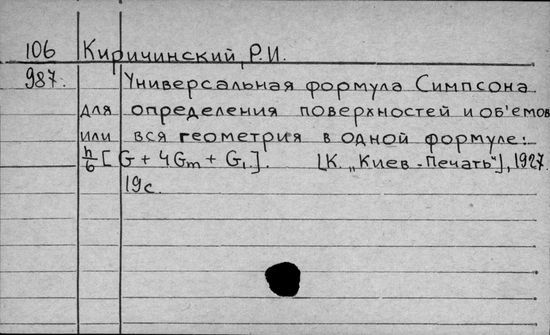 106 Киричинский, Р.И.
987. Универсальная формула Симпсона
для определения поверхностей и об'емов
или вся геометрия в одной формуле:
h/6 [G + 4Gm + G1.]. [К. „Киев-Печать"], 1927.
19с.